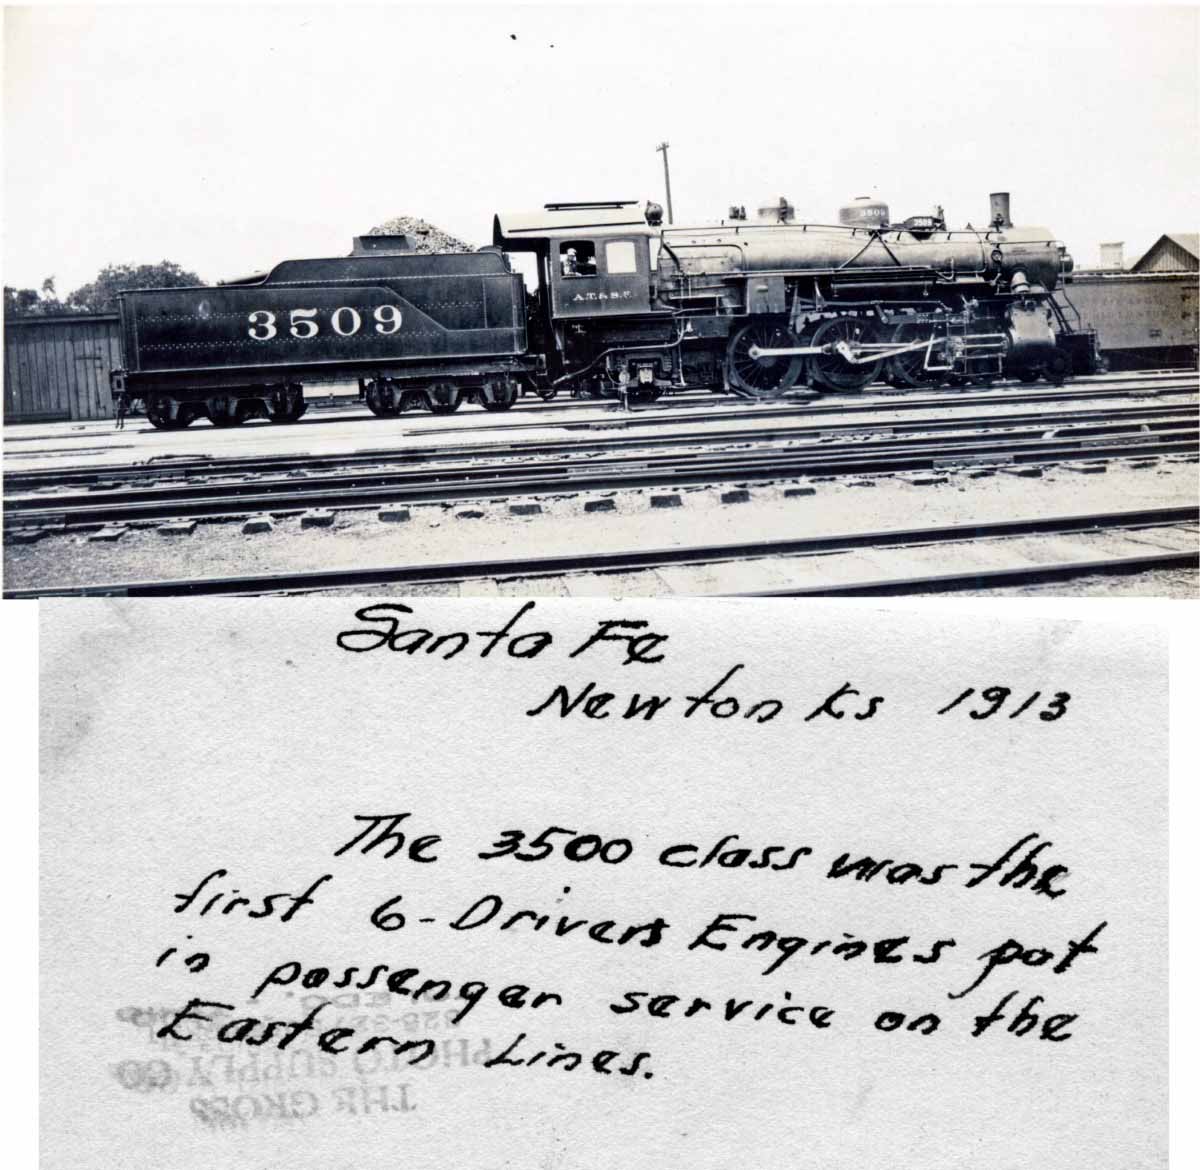 3509
A.T.& S.F.
3509
3509
Santa Fe
Newton Ks 1913
The 3500 class was the
first 6-Drivers Engines put
in passenger service on the
Eastern Lines.
PHOTO SUPPLY CO
THE GROSS